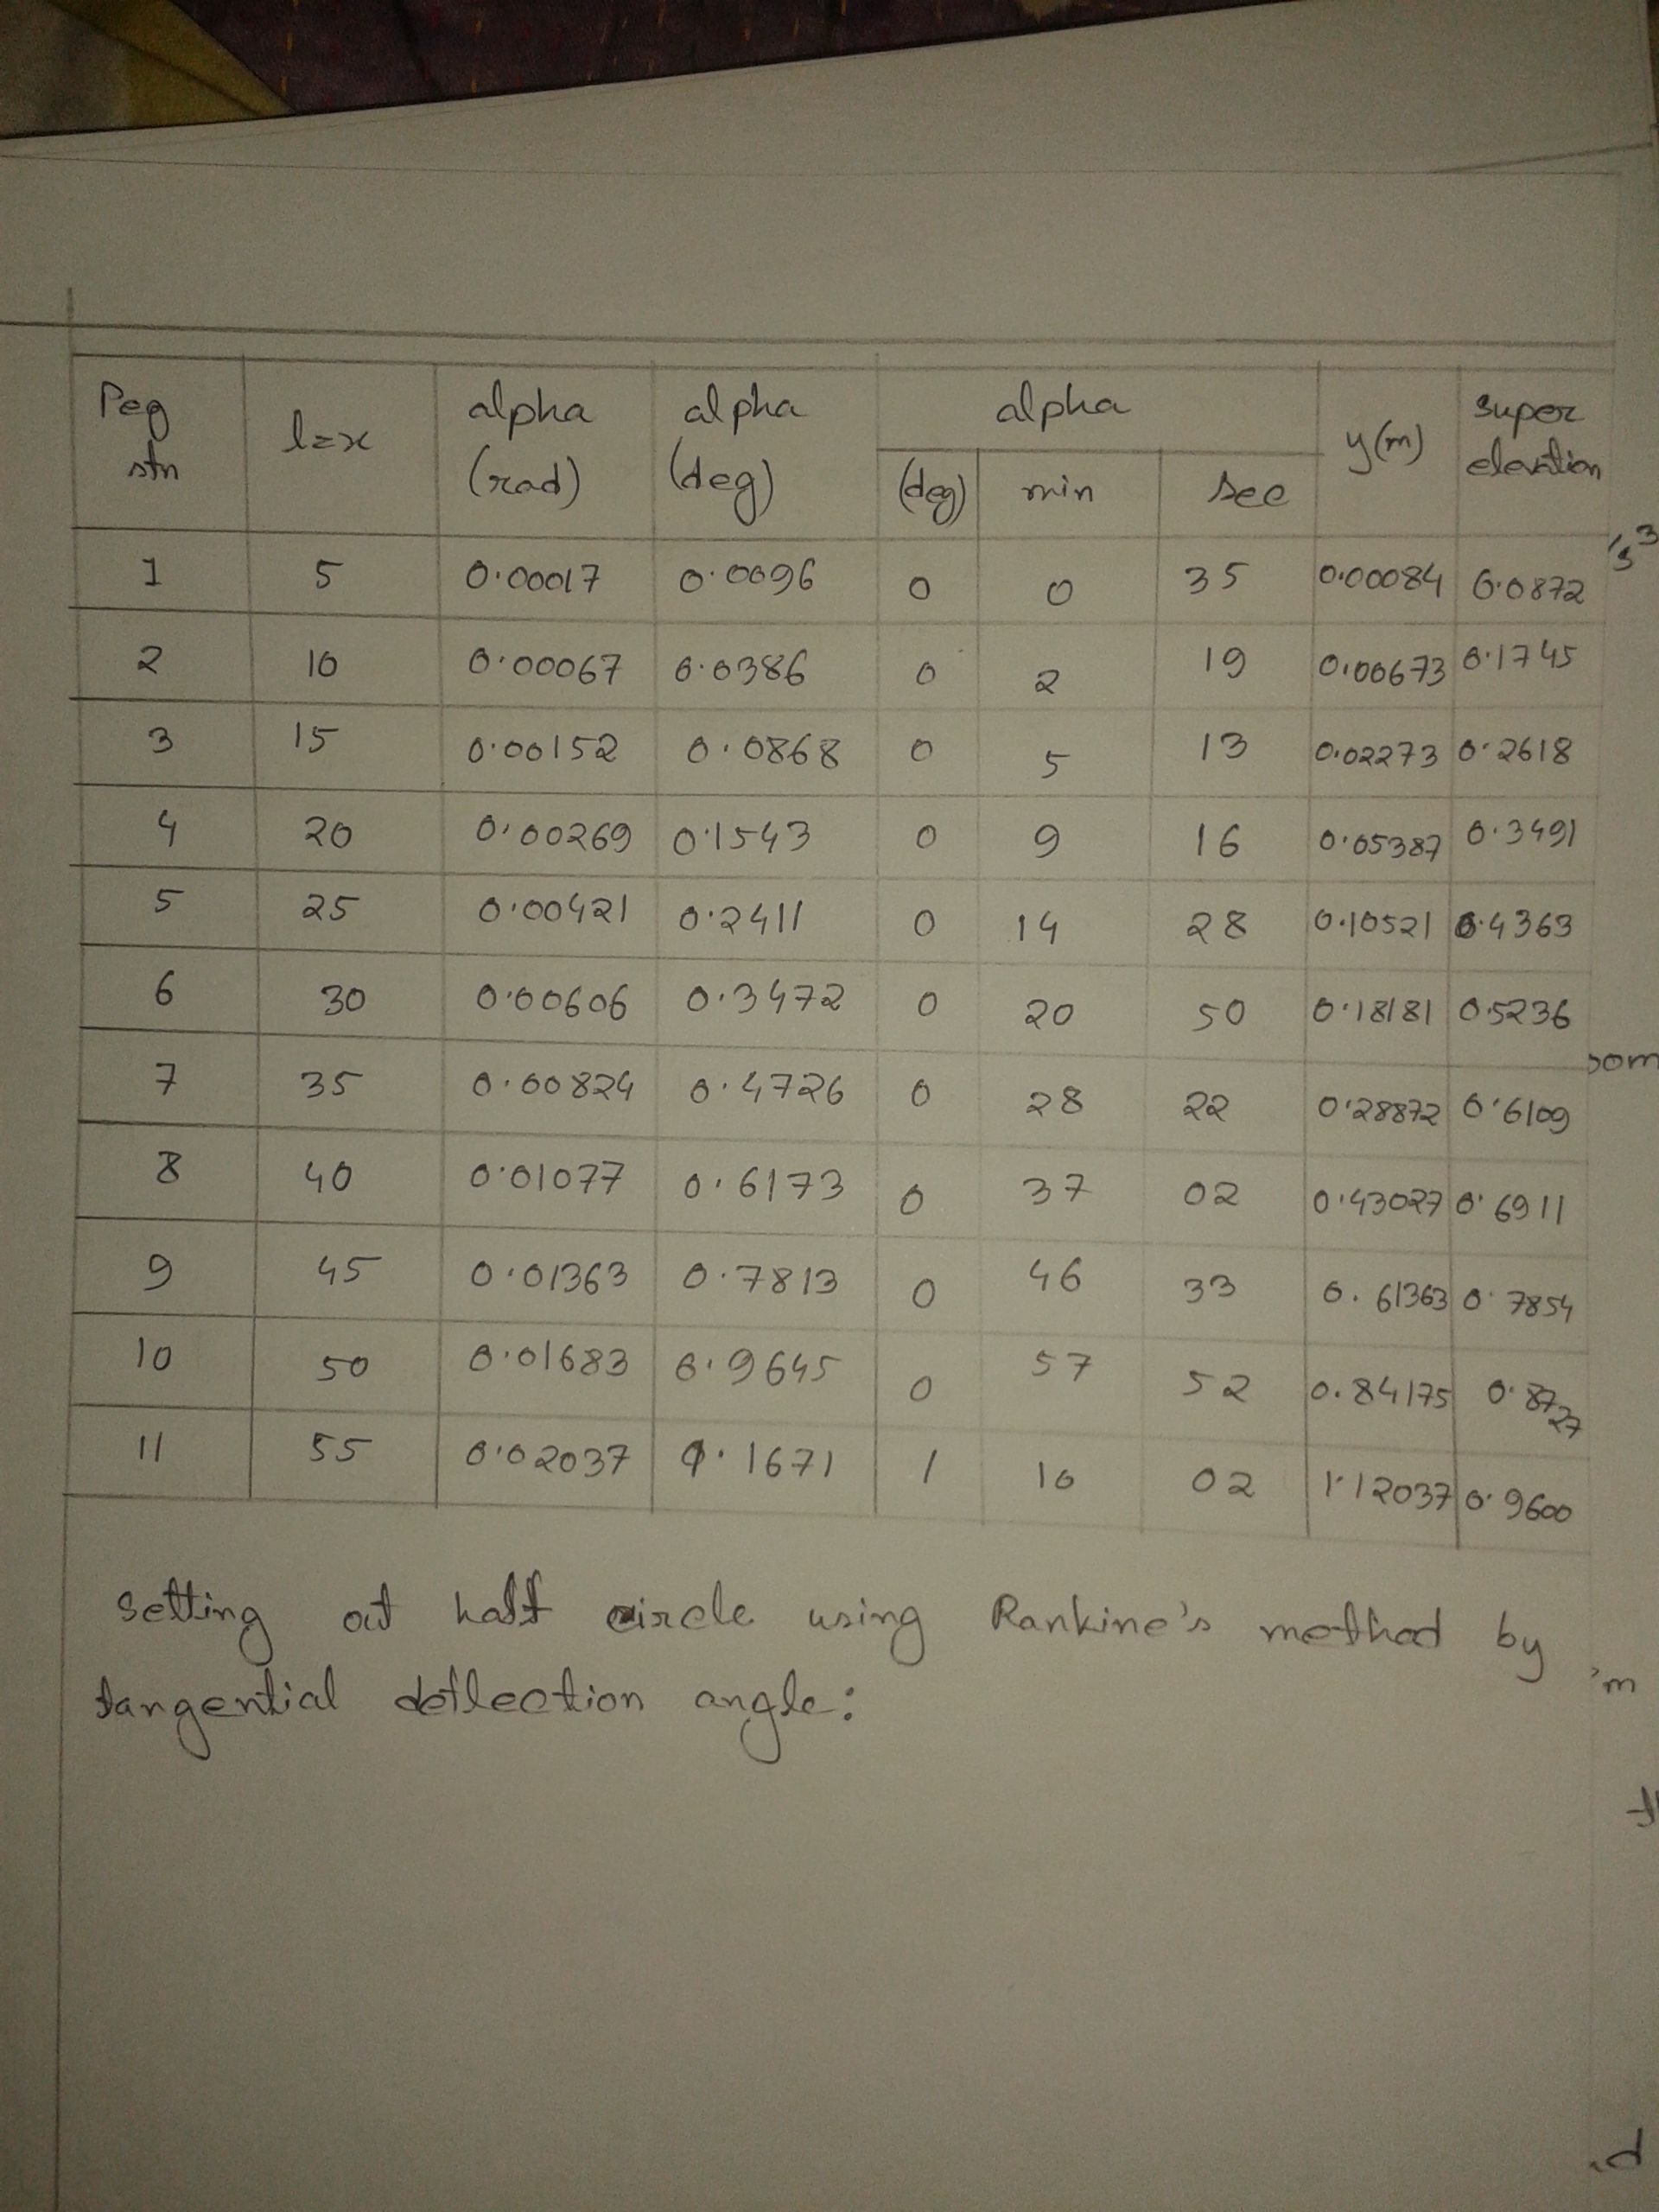 Peg stn | l=x | alpha (rad) | alpha (deg) | alpha (deg) | min | sec | y(m) | super elevation
1 | 5 | 0.00017 | 0.0096 | 0 | 0 | 35 | 0.00084 | 0.0872
2 | 10 | 0.00067 | 0.0386 | 0 | 2 | 19 | 0.00673 | 0.1745
3 | 15 | 0.00152 | 0.0868 | 0 | 5 | 13 | 0.02273 | 0.2618
4 | 20 | 0.00269 | 0.1543 | 0 | 9 | 16 | 0.05387 | 0.3491
5 | 25 | 0.00421 | 0.2411 | 0 | 14 | 28 | 0.10521 | 0.4363
6 | 30 | 0.00606 | 0.3472 | 0 | 20 | 50 | 0.18181 | 0.5236
7 | 35 | 0.00824 | 0.4726 | 0 | 28 | 22 | 0.28872 | 0.6109
8 | 40 | 0.01077 | 0.6173 | 0 | 37 | 02 | 0.43027 | 0.6911
9 | 45 | 0.01363 | 0.7813 | 0 | 46 | 33 | 0.61363 | 0.7854
10 | 50 | 0.01683 | 0.9645 | 0 | 57 | 52 | 0.84175 | 0.8727
11 | 55 | 0.02037 | 1.1671 | 1 | 10 | 02 | 1.12037 | 0.9600
Setting out half circle using Rankine's method by
tangential deflection angle: